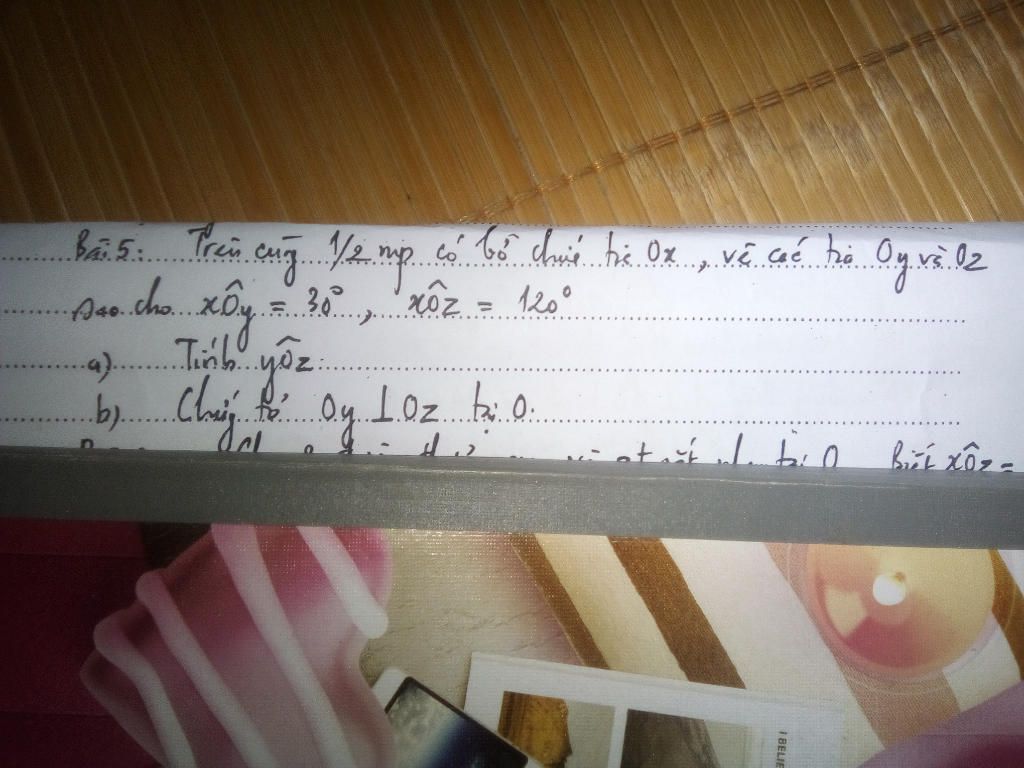 Bài 5: Trên cùng 1/2 mp có bờ chứa tia Ox, vẽ các tia Oy và Oz
sao cho xÔy = 30°, xÔz = 120°
a) Tính yÔz.
b) Chứng tỏ Oy ⊥ Oz tại O.
tại O Biết xÔz =
I BELIE